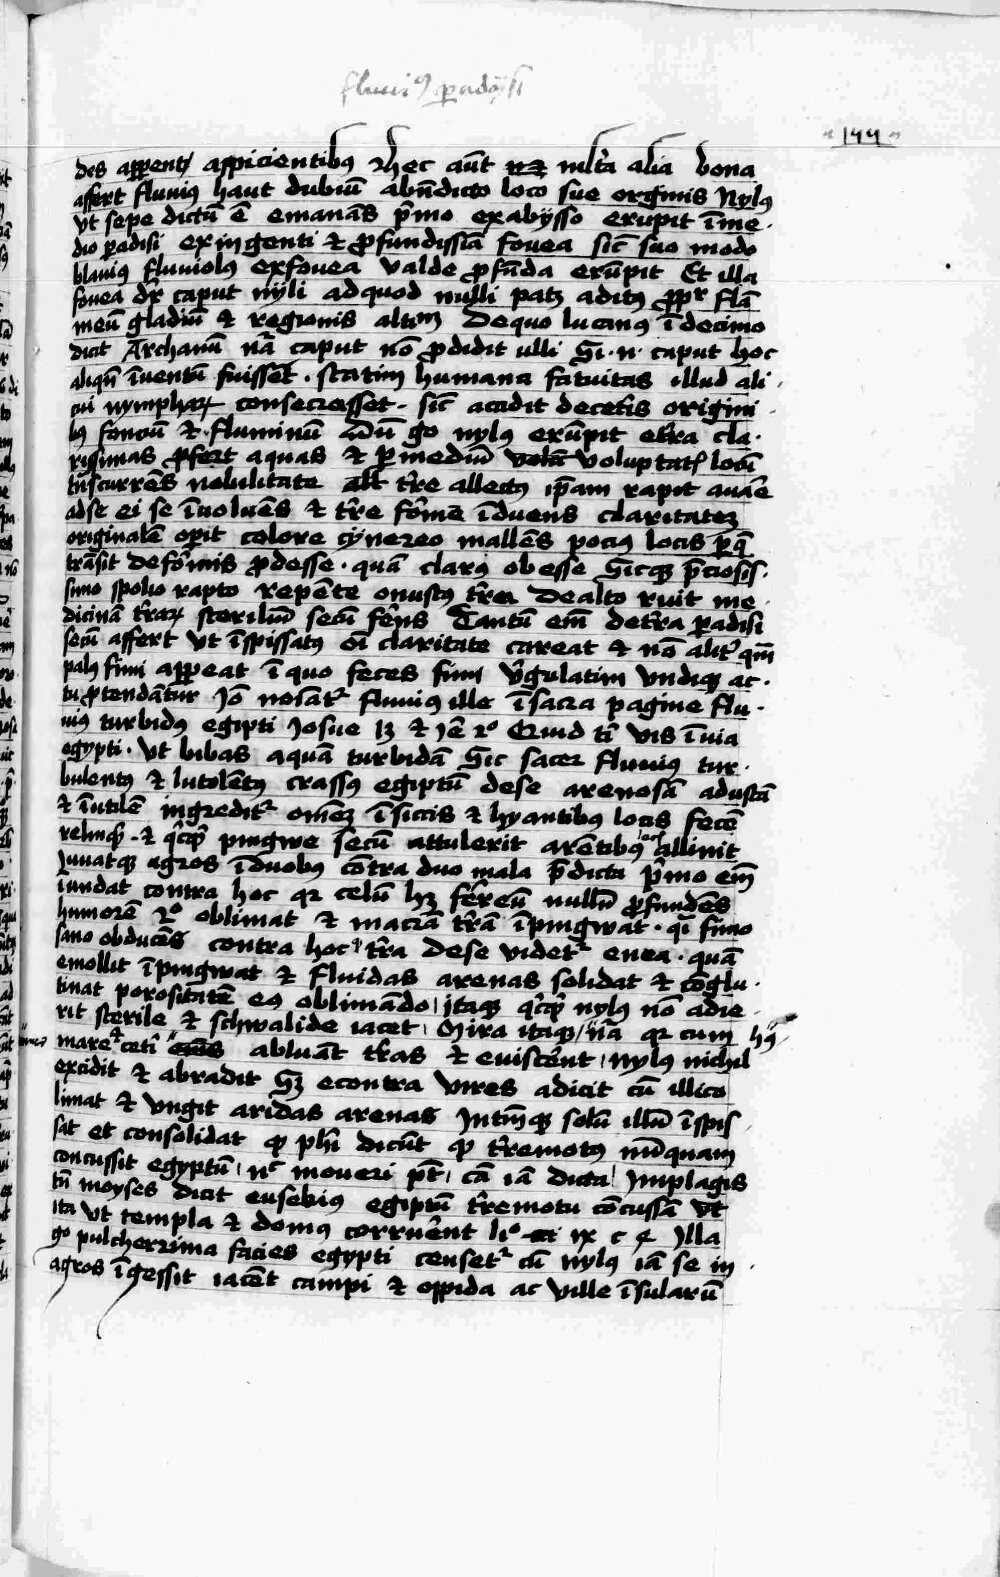 fluui9 padysi
"144"
des apparent aspicientibus hec aut multa alia bona
affert fluuius haut dubium abundicto loco sue originis Nylus
vt sepe dictum e emanans pmo exabysso erupit ime
dio padisi ex ingenti et pfundissia fouea sic suo modo
blauius fluuiolus exfouea valde pfunda erupit Et illa
fouea dr caput nyli adquod nulli patz aditus ppr flam
meu gladiu et regionis altim Dequo lucanus i decimo
dicit Archanu na caput no pdidit ulli Si . n . caput hoc
aliqn inuentu fuisset . statim humana fatuitas illud ali
cui nymphar consecrasset . sic accidit deceteris origini
bus fonciu et fluminu Cu go nylus erupit etra cla
rissimas pfert aquas et pmediu voluptatis locu
tnscurres nobilitate tre allectus ipam rapit auare
adse ei se inuoluens et tre forme induens claritatez
originale opit colore cynereo mallens pocius locis pq
transit deformis pdesse . quam clarus obesse Sicq pciosis
simo spolio rapto repente onustus trea Dealto ruit me
dicina trar sterilium secu ferens Tantu em detra padisi
secu affert vt inspissatus oi claritate careat et no alitr qm
palus fimi appeat i quo feces fimi virgulatim vndiqz ac
tu ptendantur Jo noiatr fluuius ille isacra pagine flu
uius turbidus egipti Josue 13 et Je 2o Quid ti vis i via
egypti . vt bibas aquam turbidam Sic sacer fluuius tur
bulentus et lutolentus crassus egiptu dese arenosam adustam
et inutilem ingreditr omez i siccis et hyantibus locis fecem
relinqt . et qcqd pingwe secum attulerit arentibus allinit
Juuatqz agros i duobus contra duo mala pdicta pmo em
iundat contra hoc qr celum hz ferreum nullum pfundens
humorem 2o oblimat et macram tram ipingwat . qi fimo
sano obducens contra hoc tra dese videtr enea . quam
emollit ipingwat et fluidas arenas solidat et conglu
tinat porositatem eius oblimando itaqz qcqd nylus no adie
rit sterile et schwalide iacet Mira itaqz na qr cum
mare et ceti abluant tras et euiscerent nylus nichil
excidit et abradit Sz econtra vires adicit cu illico
limat et vngit aridas arenas Intmqz solum illud inspis
sat et consolidat qd phi dicunt qd tremotus nunquam
concussit egyptum nc moueri pt ca ia dicta Jn plagis
tn moyses dicit eusebius egiptum tremotu concussam vt
ita vt templa et domus corruerent lio ix c 4 Jlla
go pulcherrima facies egypti censetr cu nylus ia se in
agros igessit iacent campi et oppida ac ville insularum